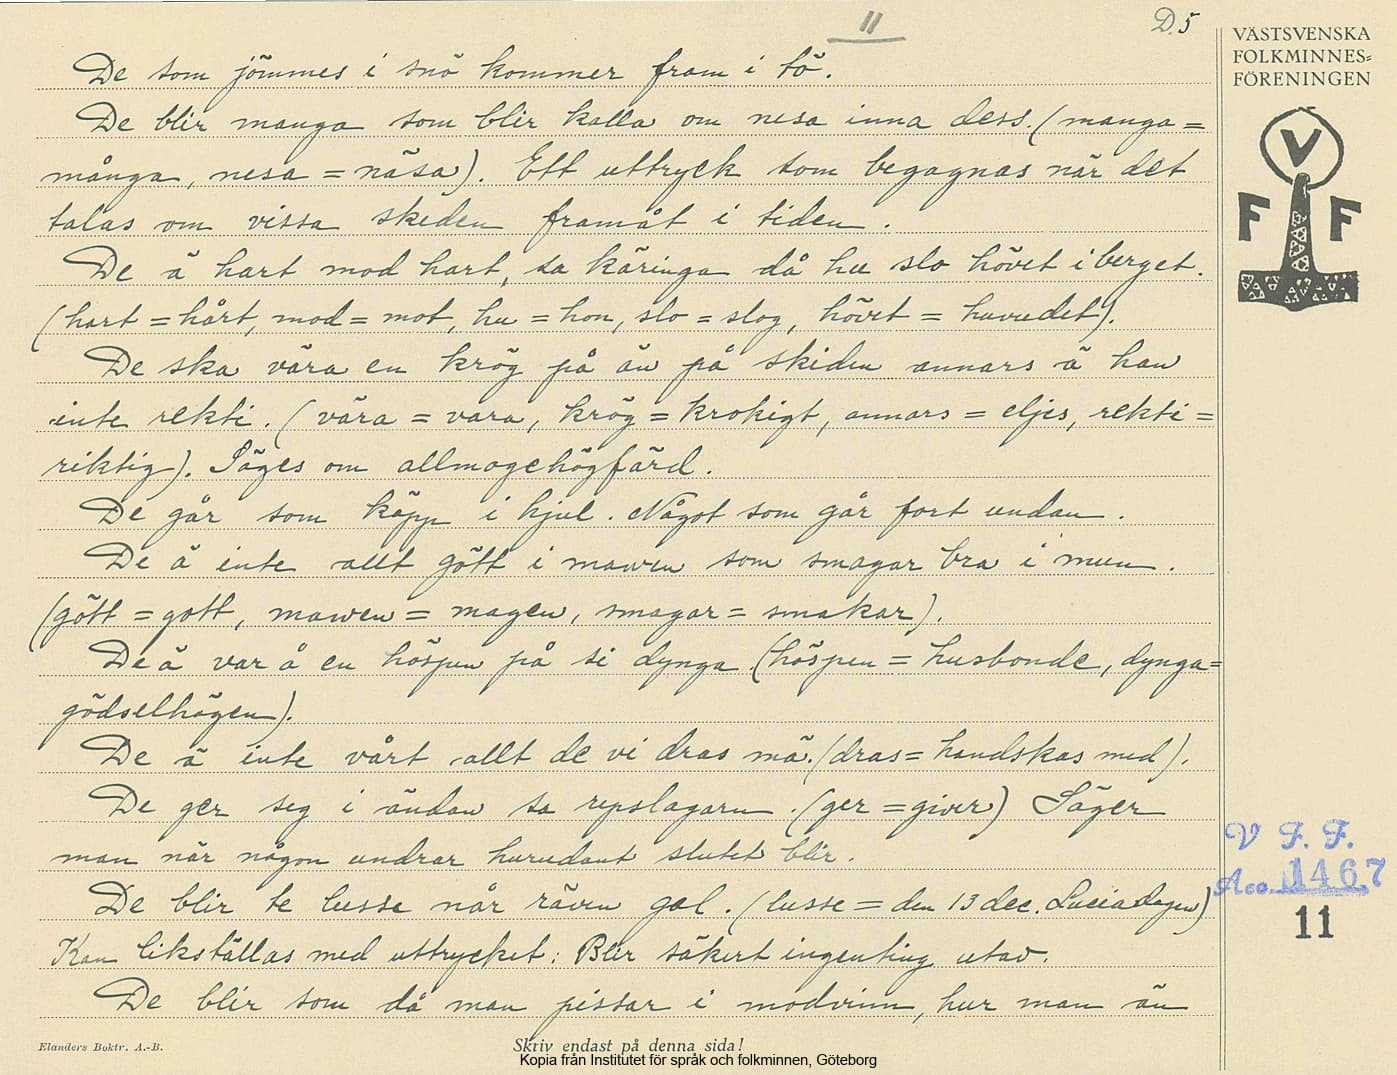 11
D.5
VÄSTSVENSKA
FOLKMINNES=
FÖRENINGEN
V
F F
De som jömmes i snö kommer fram i tö.
De blir manga som blir kalla om nesa inna dess. (manga =
många, nesa = näsa). Ett uttryck som begagnas när det
talas om vissa skeden framåt i tiden.
De ä hart mod hart, sa käringa då hu slo hövet i berget.
(hart = hårt, mod = mot, hu = hon, slo = slog, hövet = huvudet).
De ska våra en krög på än på skiden annars ä han
inte rekti. (våra = vara, krög = krokigt, annars = eljes, rekti =
riktig). Säges om allmogehögfärd.
De går som käpp i hjul. Något som går fort undan.
De ä inte allt gött i mawen som smagar bra i mun.
(gött = gott, mawen = magen, smagar = smakar).
De ä var å en höspen på si dynga. (höspen = husbonde, dynga =
gödselhögen).
De ä inte vårt allt de vi dras mä. (dras = handskas med).
De ger seg i ändan sa repslagarn. (ger = giver) Säger
man när någon undrar hurudant slutet blir.
De blir te lusse når räven gol. (lusse = den 13 dec. Luciadagen)
Kan likställas med uttrycket: Blir säkert ingenting utav.
De blir som då man pissar i modvinn, hur man än
V. F. F.
Acc. 1467
11
Elanders Boktr. A.-B.
Skriv endast på denna sida!
Kopia från Institutet för språk och folkminnen, Göteborg